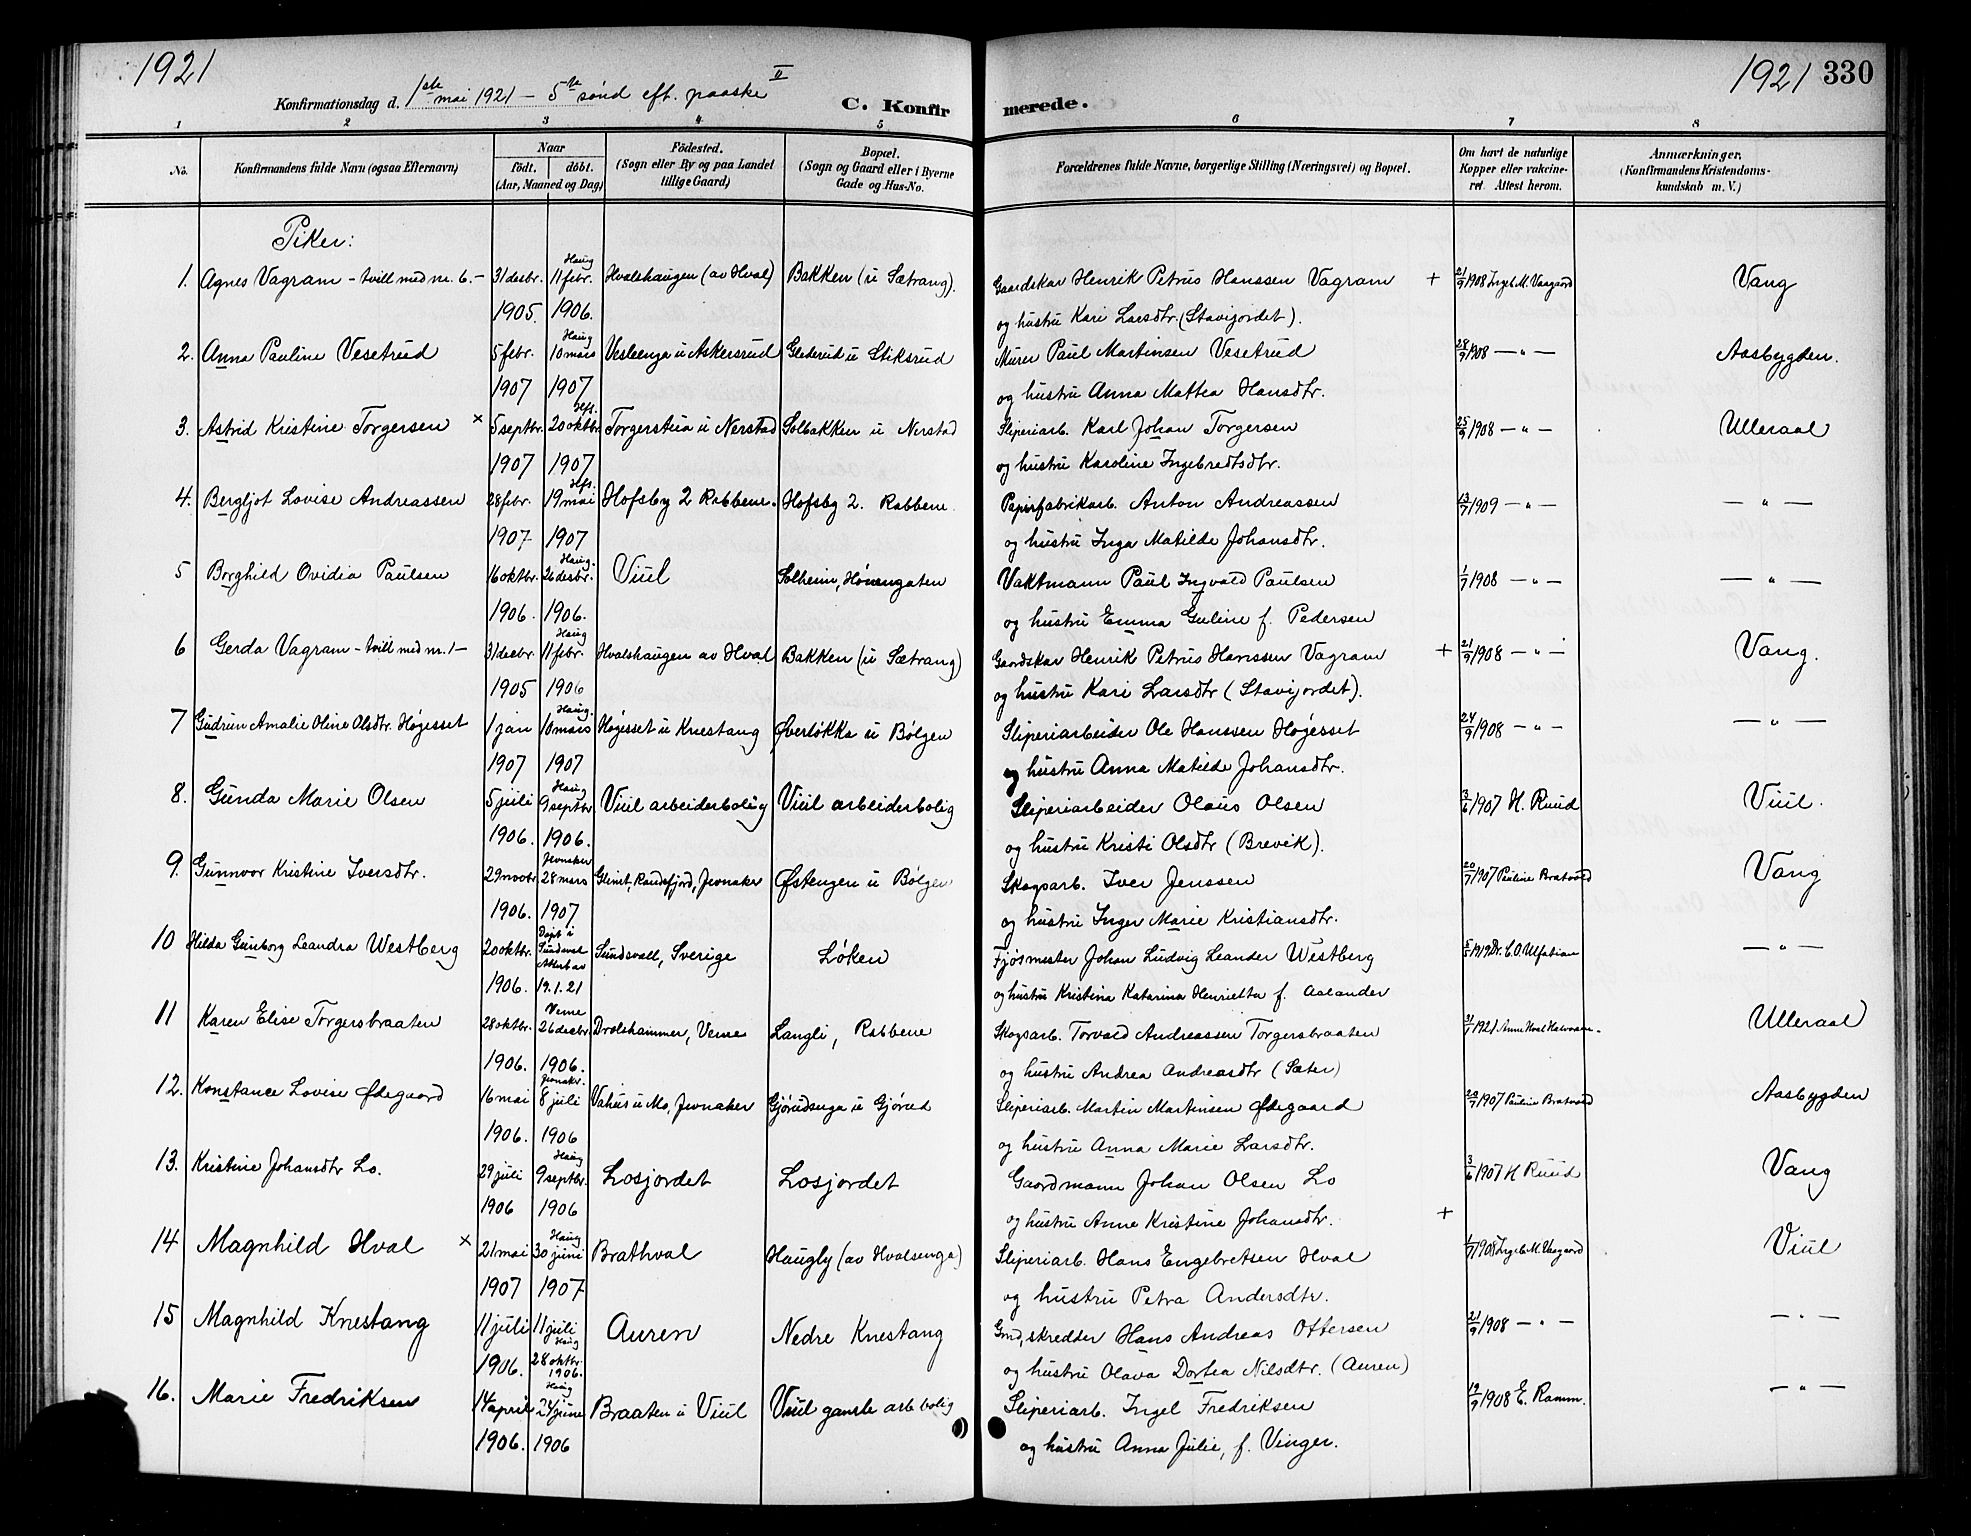 1921
Konfirmationsdag d. 1ste mai 1921 – 5te sønd eft. paaske II
C. Konfirmerede.
1921 330
1 2 3 4 5 6 7 8
No. Konfirmandens fulde Navn (ogsaa Efternavn) Naar født. døbt. (Aar, Maaned og Dag) Födested. (Sogn eller By og paa Landet tillige Gaard) Bopæl. (Sogn og Gaard eller i Byerne Gade og Hus-No. Forældrenes fulde Navne, borgerlige Stilling (Næringsvei) og Bopæl. Om havt de naturlige Kopper eller vakcineret. Attest herom. Anmærkninger. (Konfirmandens Kristendomskundskab m. V.)
Piker:
1. Agnes Vagram – tvill med nr. 6. – 31 desbr. 1905. Haug 11 febr. 1906. Hvalshaugen (av Hval) Bakken (u Sætrang). Gaardskar Henrik Petrus Hanssen Vagram + 21/9 1908 Ingeb. M. Vaagaard Vang
og hustru Kari Larsdtr. (Stavijordet).
2. Anna Pauline Vesetrud 5 febr. 1907 Haug 10 mars 1907 Vesleenga u Askersrud Glederud u Stiksrud Murer Paul Martinsen Vesetrud 28/9 1908 – " – Aasbygden.
og hustru Anna Mathea Hansdtr.
3. Astrid Kristine Torgersen × 5 septbr. 1907 Hfs. 20 oktbr. 1907 Torgersteia u Nerstad Solbakken u Nerstad Sliperiarb. Karl Johan Torgersen 25/9 1908 – " – Ulleraal
og hustru Karoline Ingebredtsdtr.
4. Bergljot Lovise Andreassen 28 febr. 1907 Hfs. 19 mai 1907 Hofsby 2 Rabbene. Hofsby 2. Rabbene Papirfabrikarb. Anton Andreassen 13/7 1909 – " – – " –
og hustru Inga Matilde Johansdtr.
5 Borghild Ovidia Paulsen 16 oktbr. 1906. Haug. 26 desbr. 1906. Viul Solheim, Hønengaten Vaktmann Paul Ingvald Paulsen 1/7 1908 – " – – " –
og hustru Emma Guline f. Pedersen
6 Gerda Vagram – tvill med nr. 1 – 31 desbr. 1905 Haug 11 febr. 1906 Hvalshaugen av Hval Bakken (u Sætrang) Gaardskar Henrik Petrus Hanssen Vagram + 21/9 1908 – " – Vang.
og hustru Kari Larsdtr (Stavijordet).
7 Gudrun Amalie Oline Olsdtr. Høgesset 1 jan 1907 Haug. 10 mars 1907 Høgesset u Knestang Øverløkka u Bølgen Sliperiarbeider Ole Hanssen Høgesset 24/9 1908 – " – – " –
og hustru Anna Matilde Johansdtr.
8. Gunda Marie Olsen 5 juli 1906. Haug 9 septbr 1906. Viul arbeiderbolig Viul arbeiderbolig Sliperiarbeider Olaus Olsen 3/6 1907 H. Ruud Viul.
og hustru Kristi Olsdtr (Brevik).
9. Gunnvor Kristine Iversdtr. 29 novbr 1906. Jevnaker 28 mars 1907 Glimt, Randsfjord, Jevnaker Østengen u Bølgen Skogsarb. Iver Jenssen 20/7 1907 Pauline Bratvold Vang
og hustru Inger Marie Kristiansdtr.
10 Hilda Gunborg Leandra Westberg 20 oktbr. 1906. Døpt i Sundsvall 19.1.21 Sundsvall, Sverige Løken Fjøsmester Johan Ludvig Leander Westberg 5/5 1919 Dr. C. O. – " –
og hustru Kristina Katarina Henrietta f. Aalander
11 Karen Elise Torgersbraaten 28 oktbr. 1906. Verne 26 desbr 1906. Drolshammer, Verne Langli, Rabbene Skogsarb. Torvald Andreassen Torgersbraaten 31/1 1921 Anne Hval Ulleraal
og hustru Andrea Andreasdtr (Sæter)
12. Konstance Lovise Ødegaard 16 mai 1906. Jevnaker. 8 juli 1906 Vahus u Mo, Jevnaker Gjørudsenga u Gjørud Sliperiarb. Martin Martinsen Ødegaard 20/7 1907 Pauline Bratvold Aasbygden
og hustru Anna Marie Larsdtr.
13. Kristine Johansdtr Lo. 29 juli 1906 Haug 9 septbr. 1906 Losjordet Losjordet Gaardmann Johan Olsen Lo 3/6 1907 H Ruud Vang
og hustru Anne Kristine Johansdtr. +
14 Magnhild Hval × 21 mai 1907 Haug 30 juni 1907 Brathval Haugly (av Hvalsenga) Sliperiarb. Hans Engebretsen Hval 1/7 1908 Ingeb. M. Vaagaard Viul
og hustru Petra Andersdtr.
15 Magnhild Knestang 11 juli 1906. 11 juli Haug 28 oktbr. 1906. Auren Nedre Knestang Grd, skredder Hans Andreas Ottersen 21/9 1908 – " – – " –
og hustru Olava Dortea Nilsdtr. (Auren)
16. Marie Fredriksen 14 april 1906. Haug 24 june 1906 Braaten u Viul Viul gamle arb bolig Sliperiarb. Ingel Fredriksen 19/9 1908 E. Ramm. – " –
og hustru Anna Julie, f. Vinger.